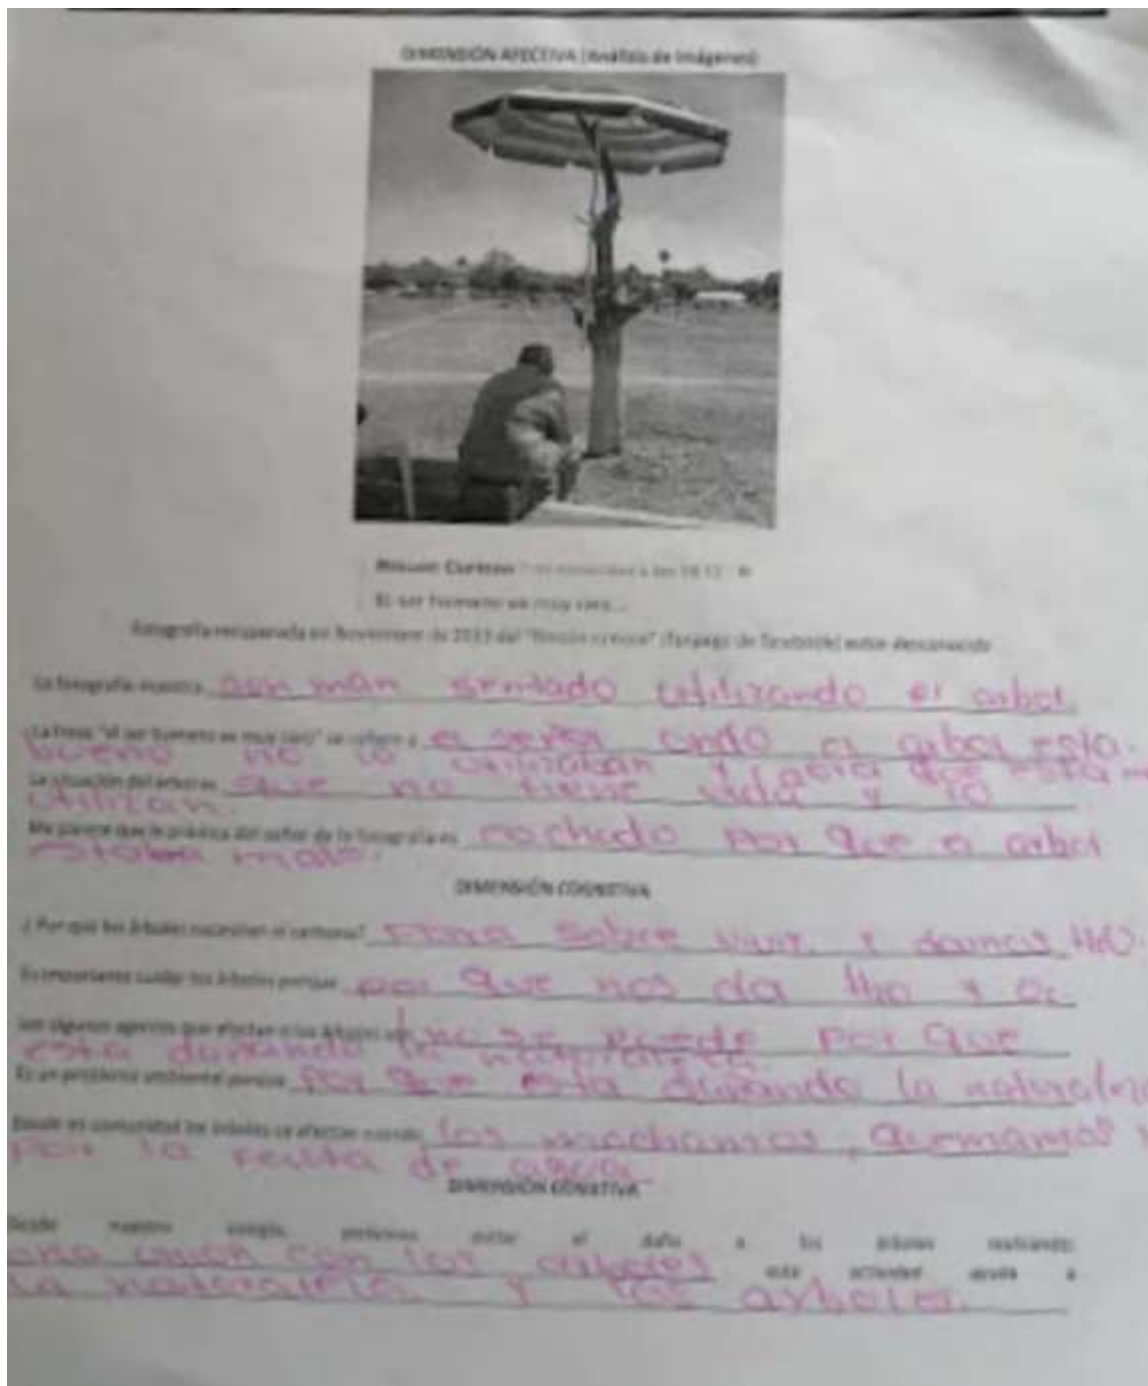 DIMENSIÓN AFECTIVA (Análisis de imágenes)
El ser humano es muy raro...
Fotografía recuperada en Noviembre de 2013 del "Rincón curioso" (fanpage de facebook) autor desconocido
La fotografía muestra aun mán sentado utilizando el arbol.
La frase "el ser humano es muy raro" se refiere a cando el arbol esta
bueno no lo utilizaban y aora que esta
La situación del árbol es que no tiene vida y lo
utilizan.
Me parece que la práctica del señor de la fotografía es por que el arbol
estaba malo.
DIMENSIÓN COGNITIVA
¿Por qué los árboles necesitan el carbono? para sobre vivir y darnos
Es importante cuidar los árboles porque por que nos da y
son algunos agentes que afectan a los árboles no se puede por que
esta
Es un problema ambiental porque por que esta la naturaleza
Desde mi comunidad los árboles se afectan cuando los mochamos, quemamos y
por la de agua
DIMENSIÓN CONATIVA
Desde nuestro colegio, podemos evitar el daño a los árboles realizando:
con los arboles esta actividad ayuda a
la naturaleza y los arboles.